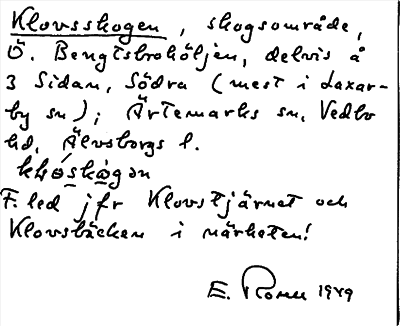 Klovsskogen, skogsområde,
Ö. Bengtsbrohöljen, delvis å
3 Sidan, Södra (mest i Laxar-
by sn); Ärtemarks sn, Vedbo
hd, Älvsborgs l.
F. led jfr Klovstjärnet och
Klovsbäcken i närheten!
E. 1949